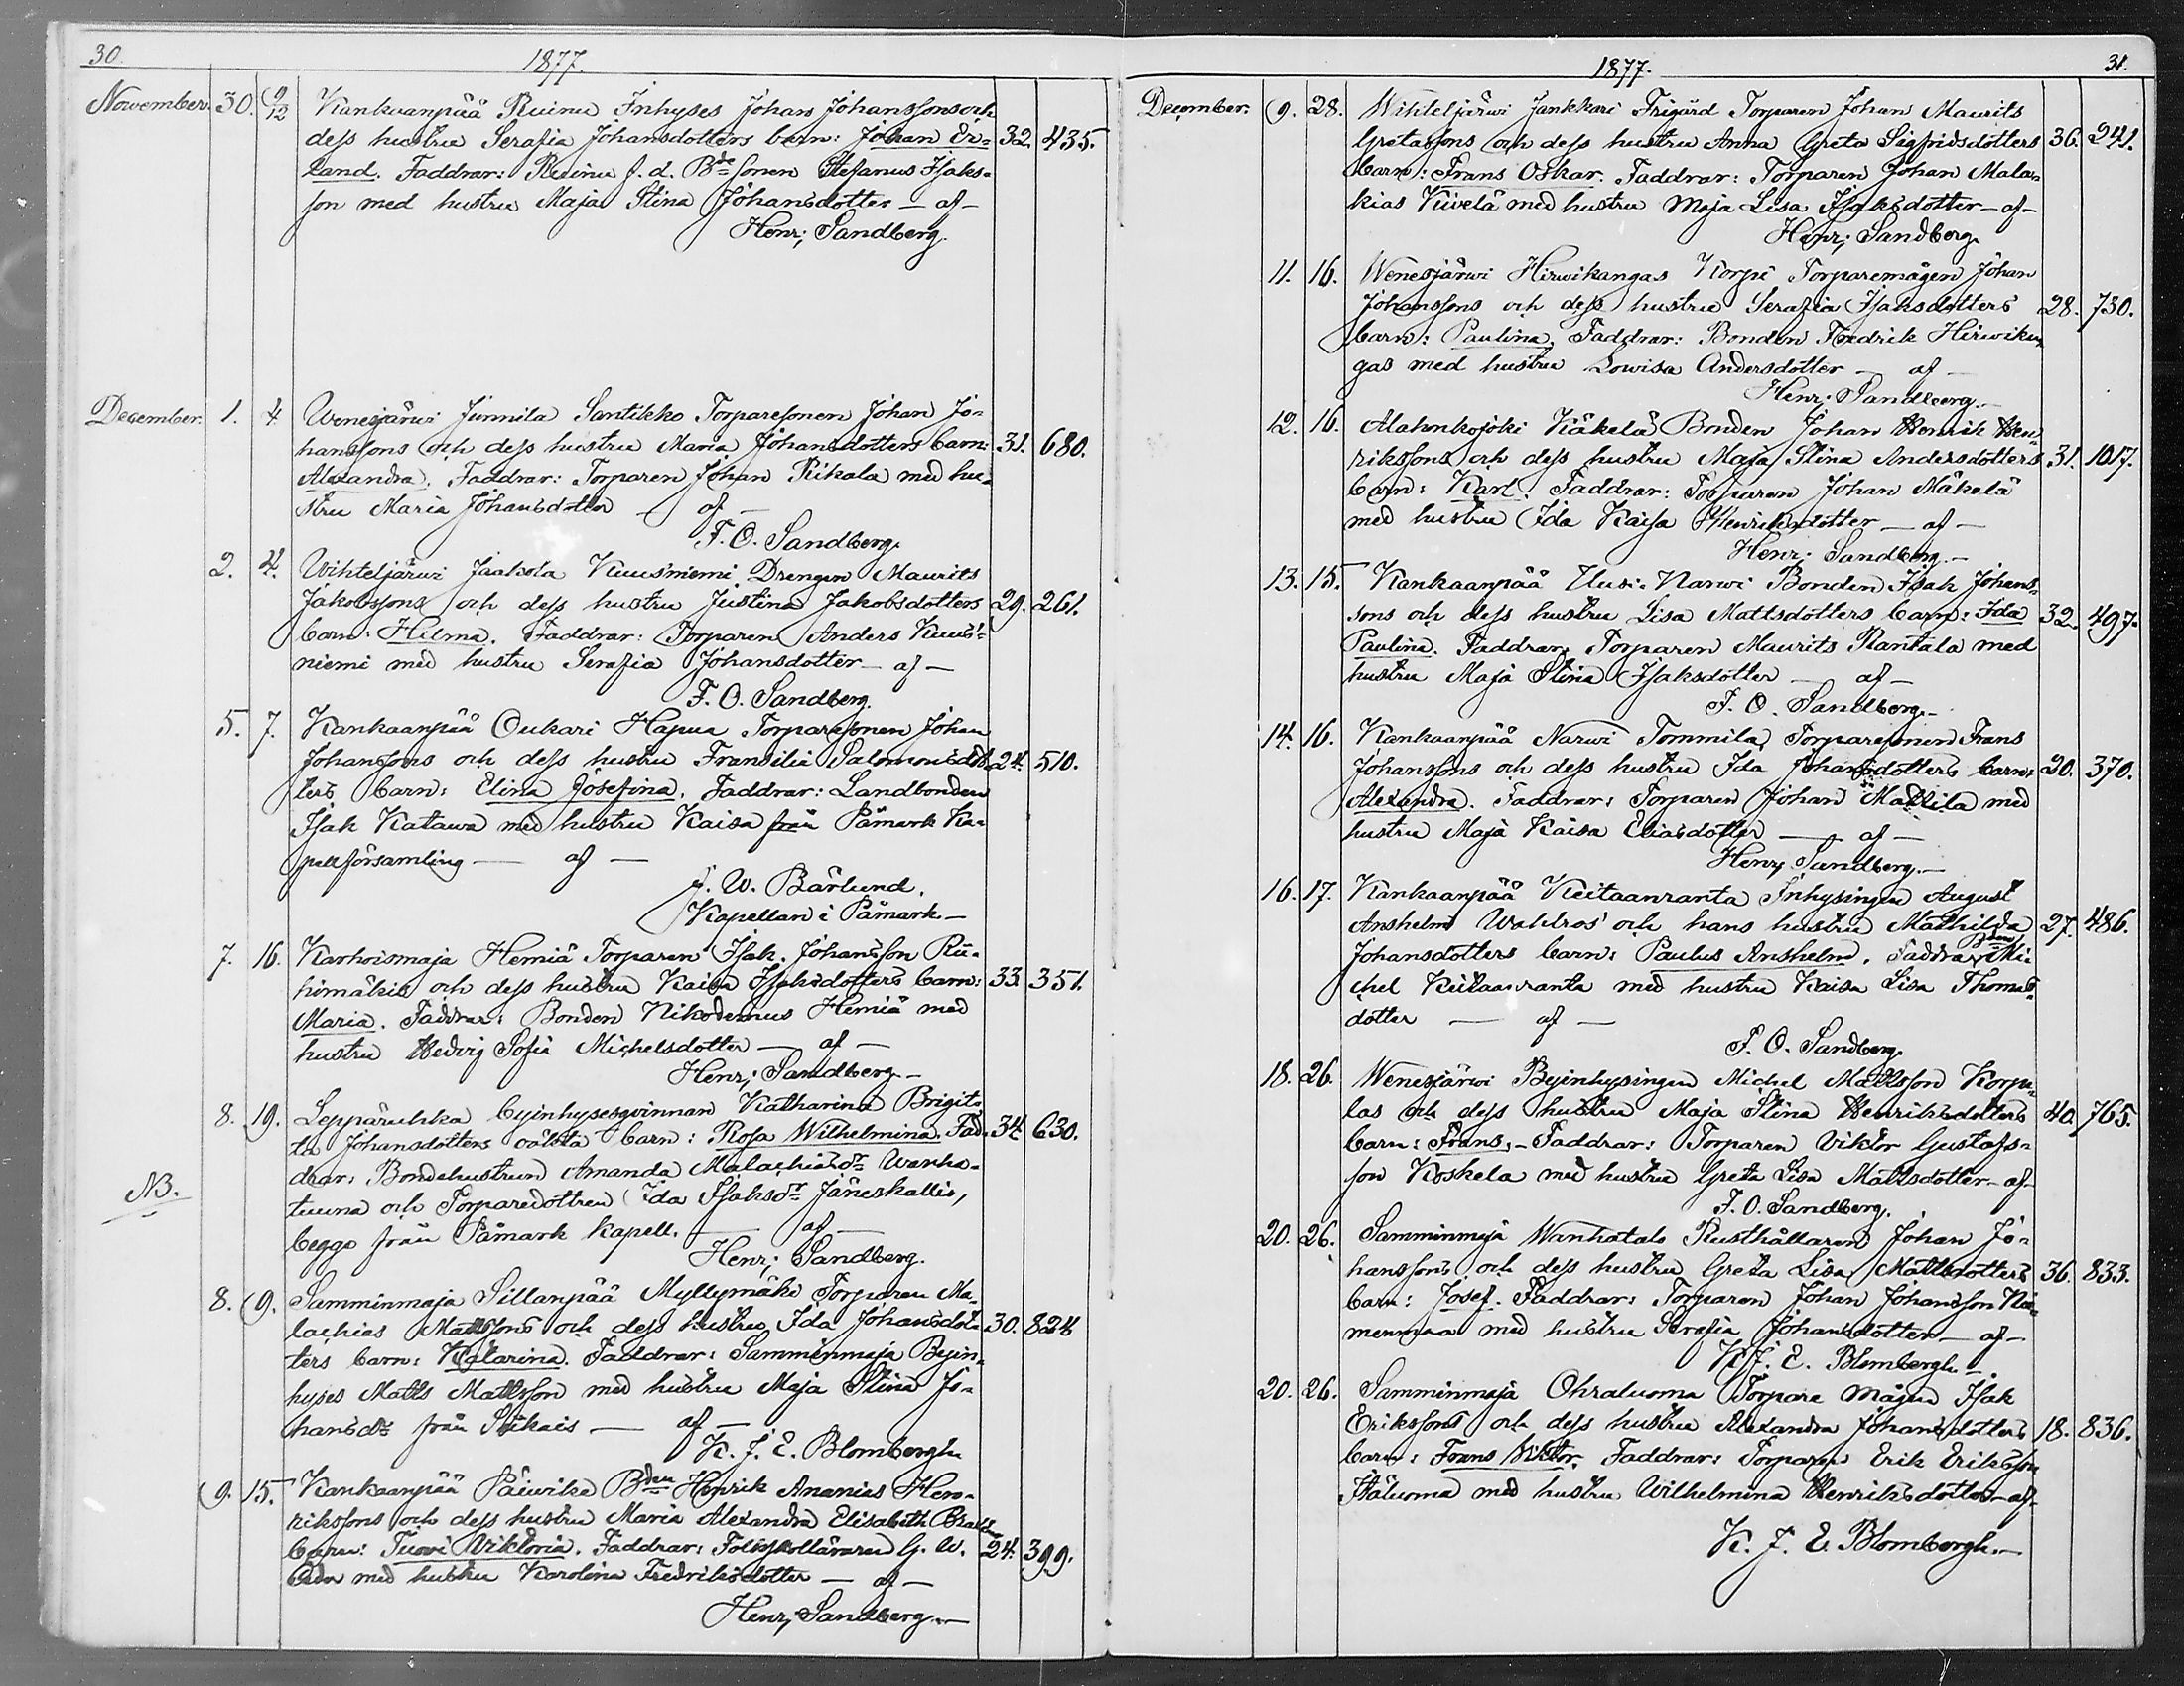 30.
1877.
November. 30. 9/12 Kankaanpää Ruinu Inhyses Johan Johanssons och
dess hustru Serafia Johansdotters barn: Johan Er- 32. 435.
land. Faddrar: Ruinu f. d. Bde sonen Stefanus Isaks-
son med hustru Maja Stina Johansdotter — af —
Henr; Sandberg.
December. 1. 4. Wenesjärwi Junnila Santikko Torparesonen Johan Jo-
hanssons och dess hustru Maria Johansdotters barn: 31. 680.
Alexandra. Faddrar: Torparen Johan Riikala med hu-
stru Maria Johansdotter — af —
F. O. Sandberg.
2. 4. Wihteljärwi Jaakola Kuusniemi Drengen Maurits
Jakobssons och dess hustru Justina Jakobsdotters 29. 261.
barn: Hilma. Faddrar: Torparen Anders Kuus-
niemi med hustru Serafia Johansdotter — af —
F. O. Sandberg.
5. 7. Kankaanpää Oukari Hapua Torparesonen Johan
Johanssons och dess hustru Fransilia Salomonsdot- 24. 510.
ters barn: Elina Josefina. Faddrar: Landbonden
Isak Katawa med hustru Kaisa från Påmark Ka-
pellförsamling — af —
J. W. Bärlund,
Kapellan i Påmark —
7. 16. Karhoismaja Hemiä Torparen Isak Johansson Rii-
himäkis och dess hustru Kaisa Isaksdotters barn: 33. 351.
Maria. Faddrar: Bonden Nikodemus Hemiä med
hustru Hedvig Sofia Michelsdotter — af —
Henr; Sandberg —
8. 19. Leppäruhka Byinhysesqvinnan Katharina Brigit-
ta Johansdotters oäkta barn: Rosa Wilhelmina. Fad- 34. 630.
drar: Bondehustrun Amanda Malachiasdr Wanha-
NB. tuuna och Torparedottren Ida Isaksdr Jäneskallio,
begge från Påmark Kapell. — af —
Henr; Sandberg.
8. 9. Samminmaja Sillanpää Myllymäki Torparen Ma-
lachias Mattssons och dess hustru Ida Johansdot- 30. 824
ters barn: Katarina. Faddrar: Samminmaja Byin-
hyses Matts Mattsson med hustru Maja Stina Jo-
hansdr från Siikais — af —
K. J. E. Blombergh
9. 15. Kankaanpää Päiwike Bden Henrik Ananias Hen-
rikssons och dess hustru Maria Alexandra Elisabeth
barn: Tuovi Viktoria. Faddrar: Folkskolläraren G. W. 24. 399.
med hustru Karolina Fredriksdotter — af —
Henr; Sandberg —
1877.
31.
December. 9. 28. Wihteljärwi Jankkari Frigård Torparen Johan Maurits
Gretassons och dess hustru Anna Greta Sigfridsdotters 36. 241.
barn: Frans Oskar. Faddrar: Torparen Johan Mala-
kias Kivelä med hustru Maja Lisa Isaksdotter — af —
Henr; Sandberg
11. 16. Wenesjärwi Hirwikangas Korpi Torparemågen Johan
Johanssons och dess hustru Serafia Isaksdotters 28. 730.
barn: Paulina. Faddrar: Bonden Fredrik Hirwikan-
gas med hustru Lowisa Andersdotter — af —
Henr; Sandberg.—
12. 16. Alahonkajoki Käkelä Bonden Johan Henrik Hen-
rikssons och dess hustru Maja Stina Andersdotters 31. 1017.
barn: Karl. Faddrar: Torparen Johan Mäkelä
med hustru Ida Kaisa Henriksdotter — af —
Henr: Sandberg.—
13. 15. Kankaanpää Uusi-Narwi Bonden Isak Johans-
sons och dess hustru Lisa Mattsdotters barn: Ida 32. 497.
Paulina. Faddrar: Torparen Maurits Rantala med
hustru Maja Stina Isaksdotter — af —
F. O. Sandberg.—
14. 16. Kankaanpää Narwi Tommila Torparesonen Frans
Johanssons och dess hustru Ida Johansdotters barn: 20. 370.
Alexandra. Faddrar: Torparen Johan Mattila med
hustru Maja Kaisa Eliasdotter — af —
Henr; Sandberg.—
16. 17. Kankaanpää Kiitaanranta Inhysingen August
Anshelm Wahlros och hans hustru Mathilda 27. 486.
Johansdotters barn: Paulus Anshelm. Faddrar: Bden Mi-
chel Kiitaanranta med hustru Kaisa Lisa Thomas-
dotter — af —
F. O. Sandberg.
18. 26. Wenesjärwi Byinhysingen Michel Mattsson Korpu-
las och dess hustru Maja Stina Henriksdotters 40. 765.
barn: Frans. — Faddrar: Torparen Viktor Gustafs-
son Koskela med hustru Greta Lisa Mattsdotter — af —
F. O. Sandberg.
20. 26. Samminmaja Wanhatalo Rusthållaren Johan Jo-
hanssons och dess hustru Greta Lisa Mattsdotters 36. 833.
barn: Josef. Faddrar: Torparen Johan Johansson Nii-
menmaa med hustru Serafia Johansdotter — af —
K. J. E. Blombergh.
20. 26. Samminmaja Ohraluoma Torpare mågen Isak
Erikssons och dess hustru Alexandra Johansdotters 18. 836.
barn: Frans Viktor. Faddrar: Torparen Erik Eriksson
Isäluoma med hustru Wilhelmina Henriksdotter — af —
K. J. E. Blombergh.—